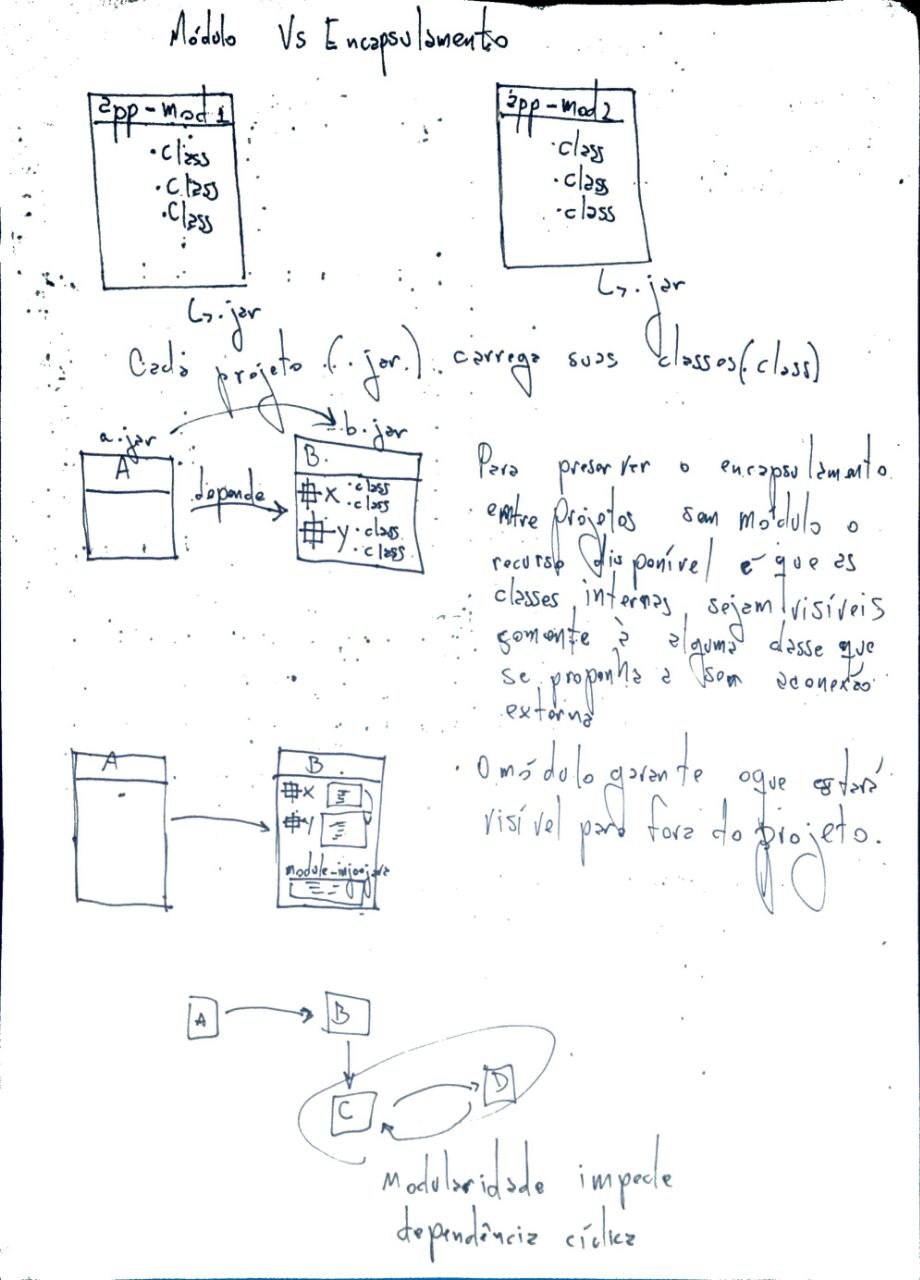 Módulo Vs Encapsulamento
app-mod1
.class
.class
.class
↳.jar
app-mod2
.class
.class
.class
↳.jar
Cada projeto (.jar) carrega suas classes(.class)
a.jar
b.jar
A
depende
B
x .class
.class
y .class
.class
Para preservar o encapsulamento
entre projetos sem módulo o
recurso disponível é que as
classes internas sejam visíveis
somente à alguma classe que
se proponha a sem a conexão
externa
A
B
x
y
module-info.java
· O módulo garante oque estará
visível para fora do projeto.
A
B
C
D
Modularidade impede
dependência cíclica